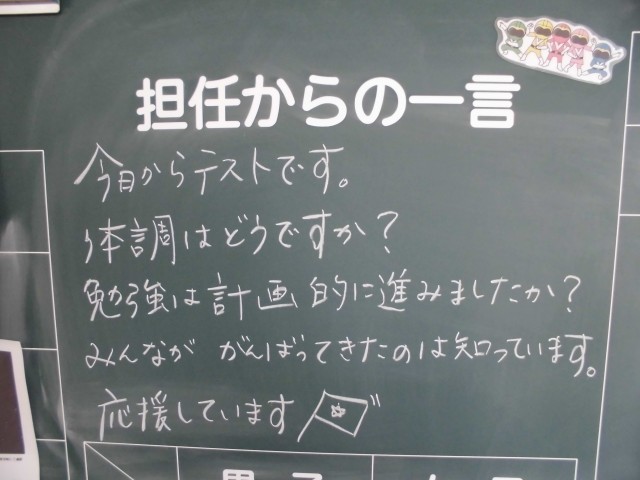 担任からの一言
今日からテストです。
体調はどうですか?
勉強は計画的に進みましたか?
みんなが がんばってきたのは知っています。
応援しています